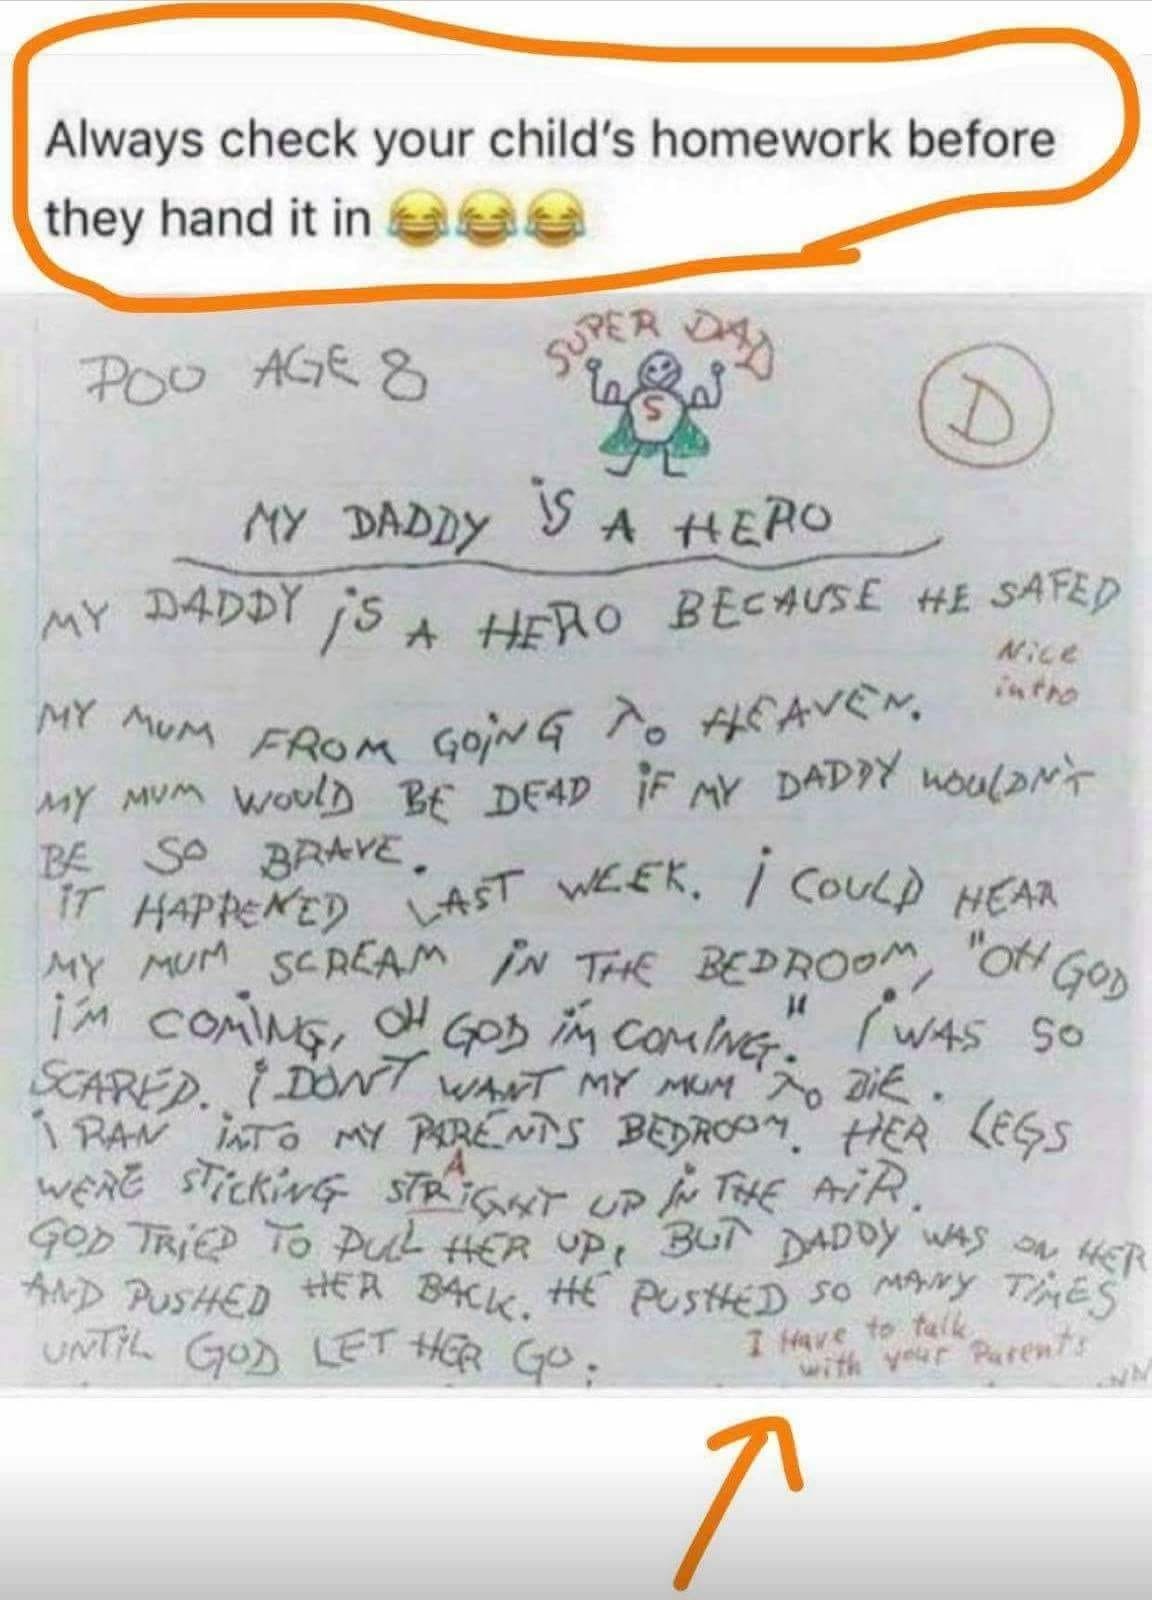 Always check your child's homework before
they hand it in 😂😂😂
SUPER DAD
POO AGE 8
S
D
MY DADDY iS A HERO
MY DADDY iS A HERO BECAUSE HE SAFED
Nice
intro
MY MUM FROM GOiNG To HEAVEN.
MY MUM WOULD BE DEAD iF MY DADDY WOULDN'T
BE SO BRAVE.
iT HAPPENED LAST WEEK. i COULD HEAR
MY MUM SCREAM iN THE BEDROOM, "OH GOD
i'M COMiNG, OH GOD i'M COMiNG." i WAS SO
SCARED. i DON'T WANT MY MUM To DiE.
i RAN iNTO MY PARENTS BEDROOM. HER LEGS
A
WERE STiCKiNG STRiGHT UP iN THE AiR.
GOD TRiED TO PULL HER UP, BUT DADDY WAS ON HER
AND PUSHED HER BACK. HE PUSHED SO MANY TiMES
UNTiL GOD LET HER GO.
I Have to talk
with your Parents
NN